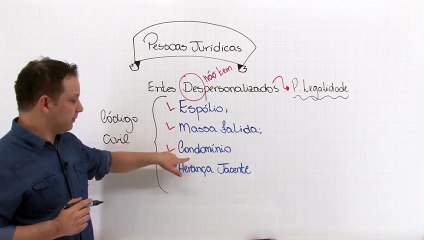 Pessoas Jurídicas
não tem
Entes Despersonalizados → P. Legalidade
Código
Civil
Espólio;
Massa falida;
Condomínio
Herança Jacente